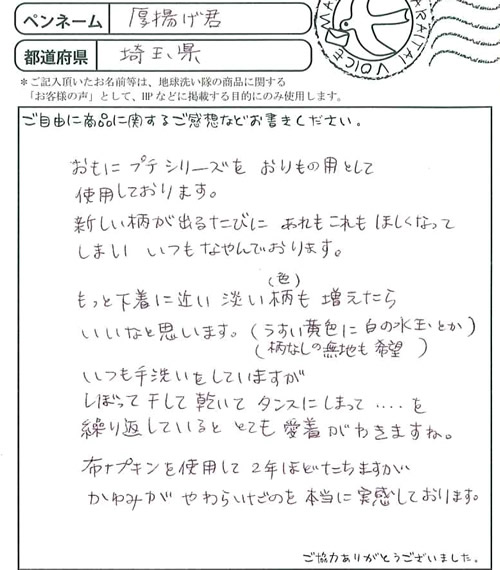 ペンネーム 厚揚げ君
都道府県 埼玉県
＊ご記入頂いたお名前等は、地球洗い隊の商品に関する
「お客様の声」として、HPなどに掲載する目的にのみ使用します。
ご自由に商品に関するご感想などお書きください。
おもに プチシリーズを おりもの用として
使用しております。
新しい柄が出るたびに あれもこれも ほしくなって
しまい いつもなやんでおります。
(色)
もっと下着に近い 淡い柄も 増えたら
いいなと思います。(うすい黄色に白の水玉とか)
(柄なしの無地も希望 )
いつも手洗いをしていますが
しぼって干して乾いて タンスにしまって ‥‥を
繰り返していると とても愛着がわきますね。
布ナプキンを使用して 2年ほどたちますが
かゆみが やわらいだのを 本当に実感しております。
ご協力ありがとうございました。